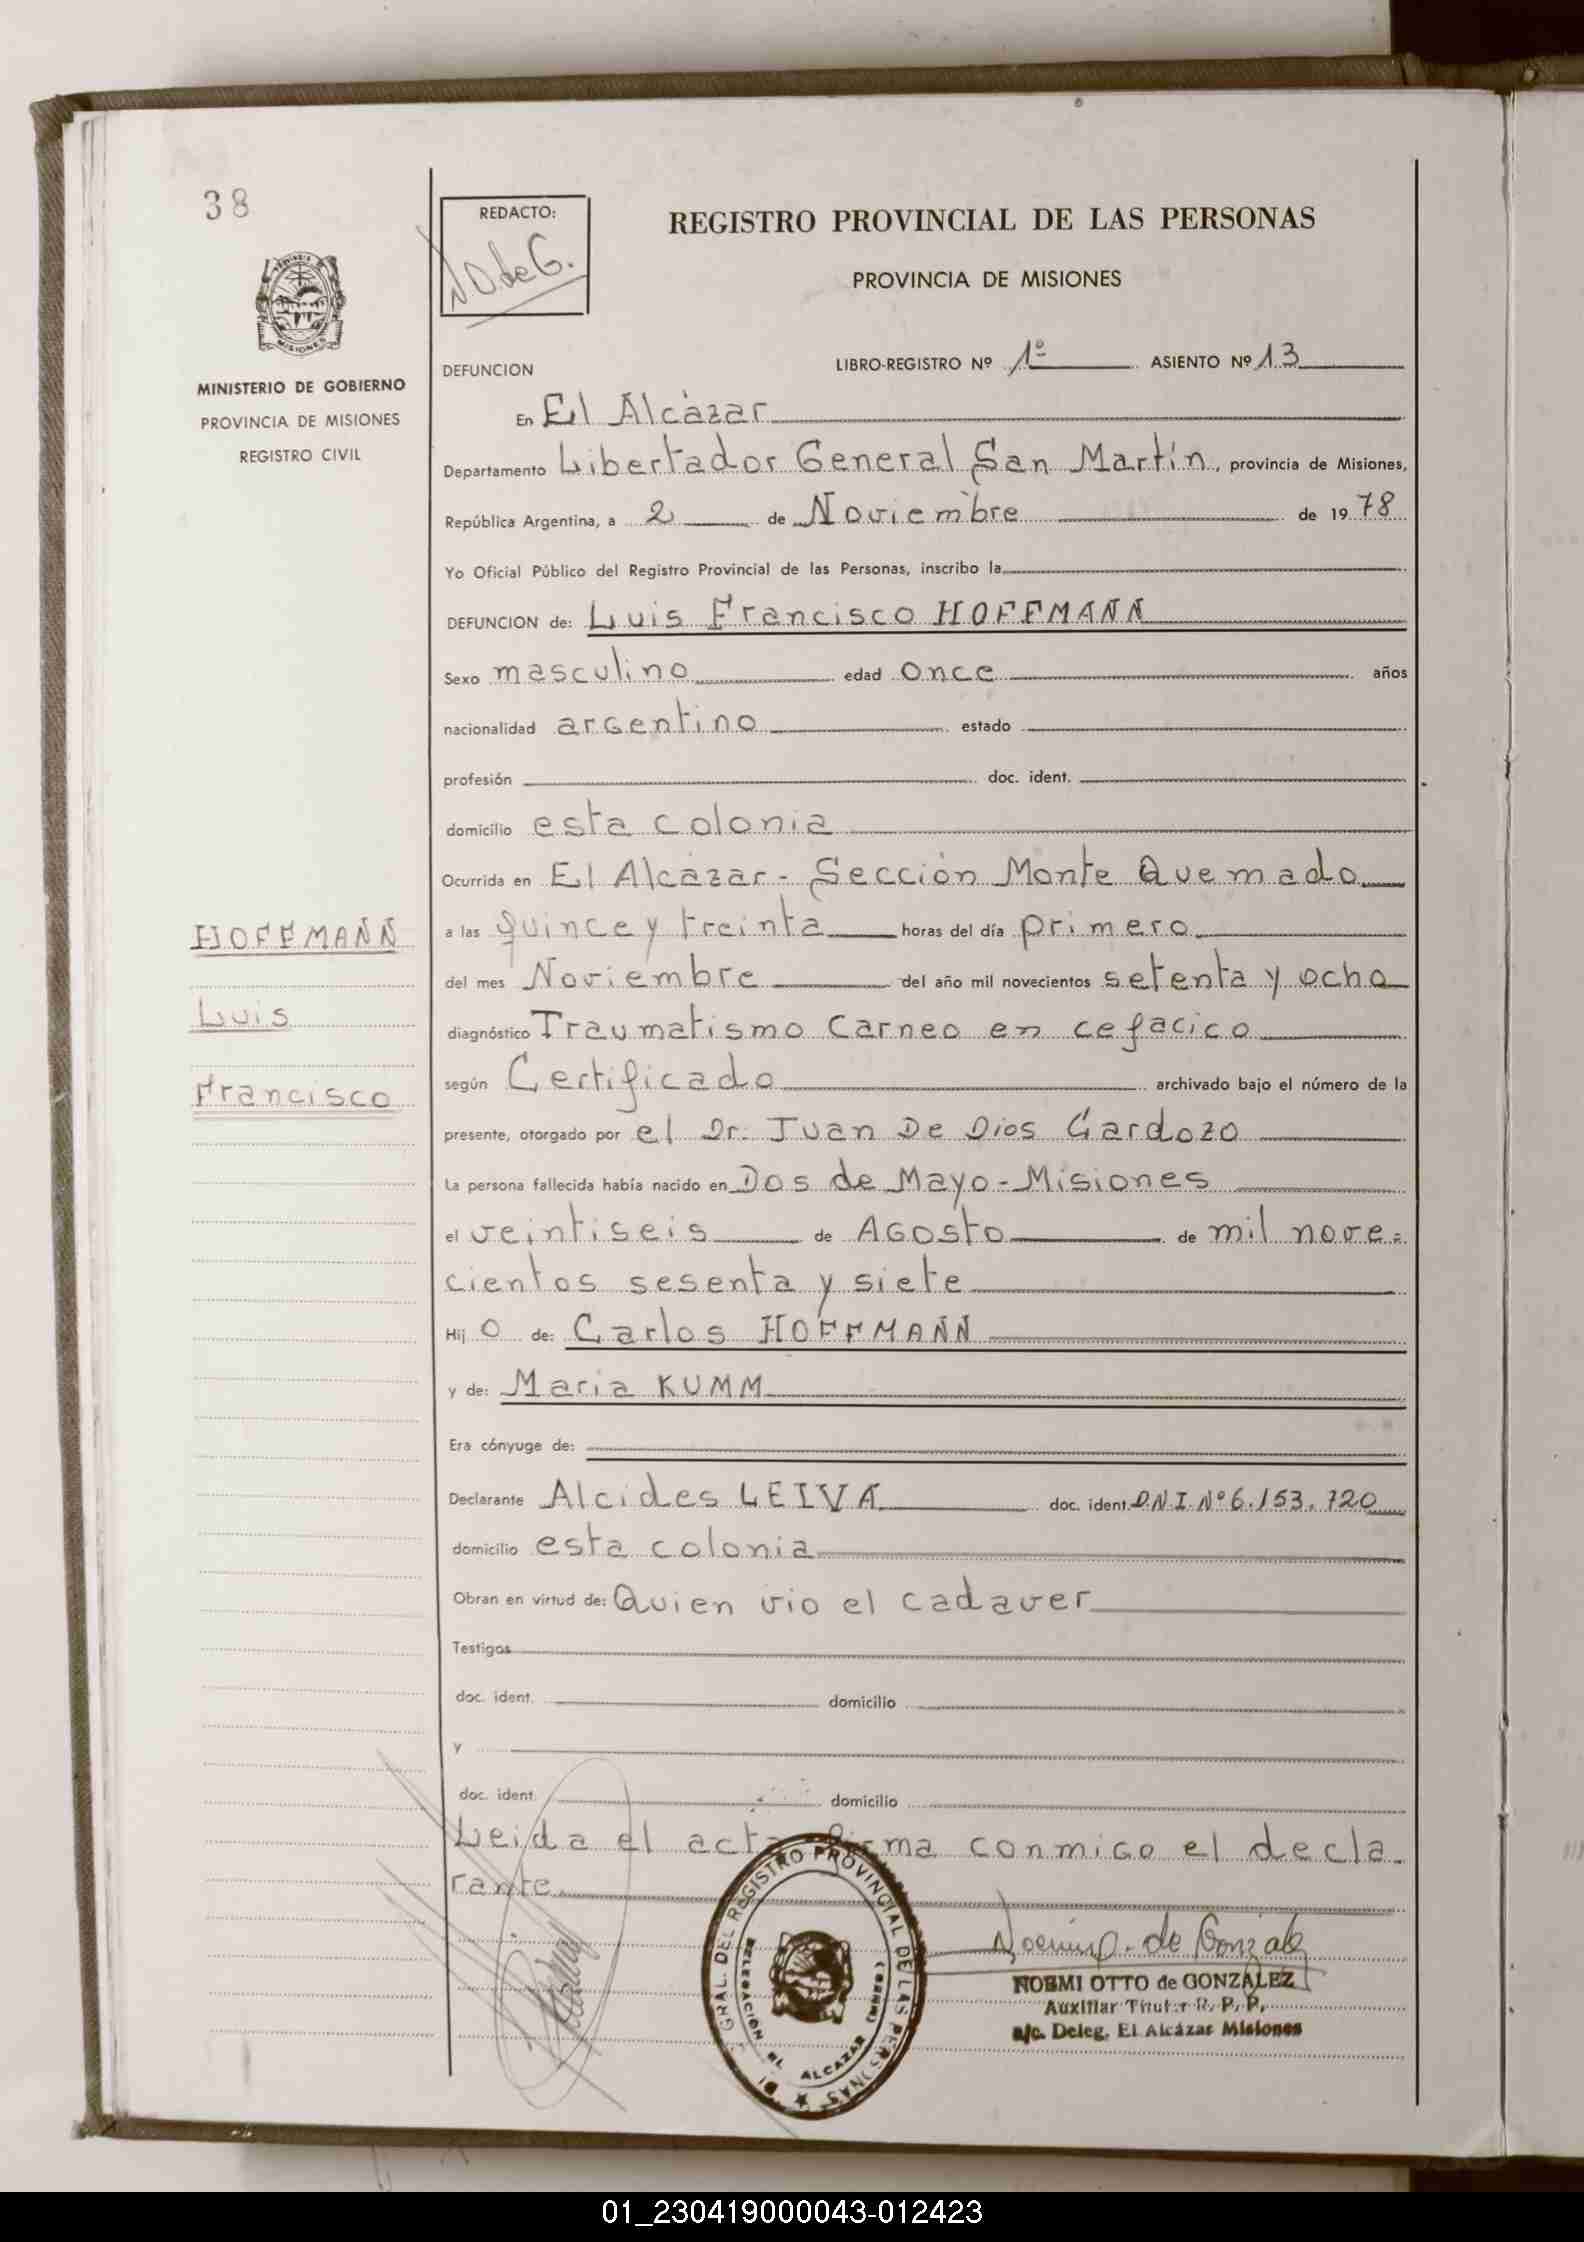 38
REDACTO:
N O de G.
REGISTRO PROVINCIAL DE LAS PERSONAS
PROVINCIA DE MISIONES
MISIONES
MINISTERIO DE GOBIERNO
PROVINCIA DE MISIONES
REGISTRO CIVIL
DEFUNCION LIBRO-REGISTRO Nº 1º ASIENTO Nº 13
En El Alcázar
Departamento Libertador General San Martín, provincia de Misiones,
República Argentina, a 2 de Noviembre de 1978
Yo Oficial Público del Registro Provincial de las Personas, inscribo la
DEFUNCION de: Luis Francisco HOFFMANN
Sexo masculino edad once años
nacionalidad argentino estado
profesión doc. ident.
domicilio esta colonia
Ocurrida en El Alcázar - Sección Monte Quemado
HOFFMANN
Luis
Francisco
a las quince y treinta horas del día primero
del mes Noviembre del año mil novecientos setenta y ocho
diagnóstico Traumatismo Carneo en cefacico
según Certificado archivado bajo el número de la
presente, otorgado por el Dr. Juan De Dios Gardozo
La persona fallecida había nacido en Dos de Mayo - Misiones
el veintiseis de Agosto de mil nove=
cientos sesenta y siete
Hij o de: Carlos HOFFMANN
y de: Maria KUMM
Era cónyuge de:
Declarante Alcides LEIVA doc. ident. D.N.I. Nº 6.153.720
domicilio esta colonia
Obran en virtud de: Quien vio el cadaver
Testigos
doc. ident. domicilio
y
doc. ident. domicilio
Leida el acta firma conmigo el decla
rante
GRAL. DEL REGISTRO PROVINCIAL DE LAS PERSONAS
DELEGACIÓN EL ALCAZAR
Noemi O. de Gonzalez
NOEMI OTTO de GONZALEZ
Auxiliar Titular R. P. P.
a/c. Deleg. El Alcázar Misiones
01_230419000043-012423